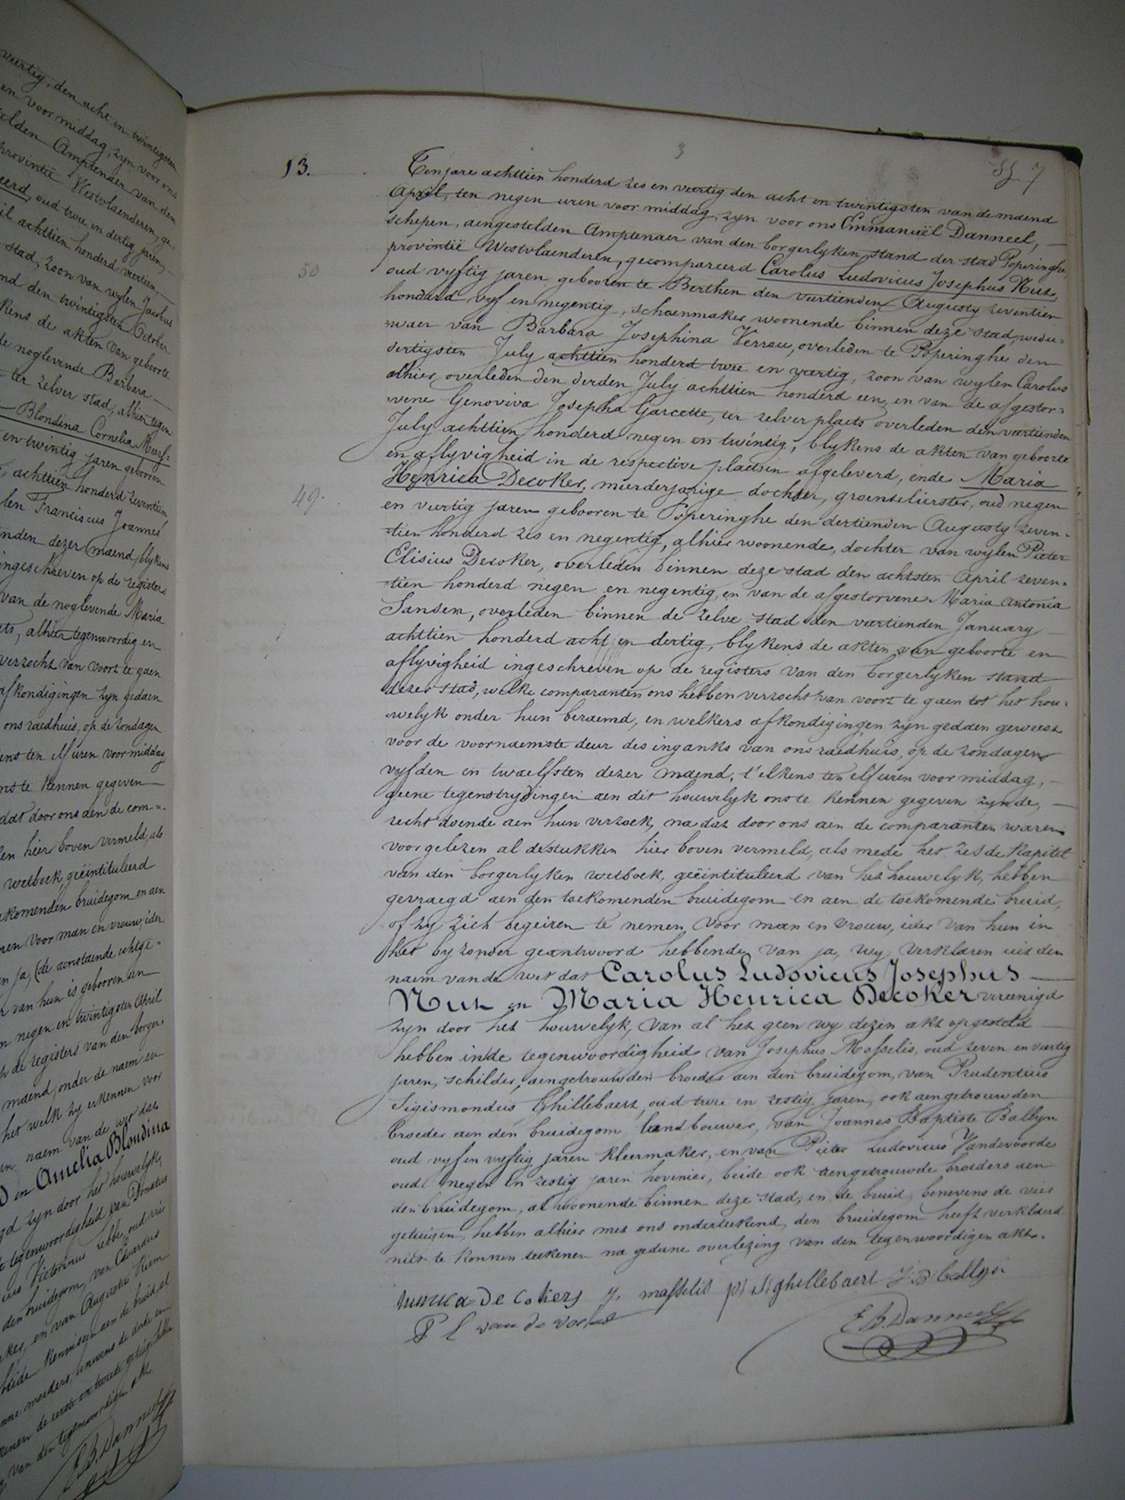 veertig, den acht en twintigsten
en voor middag, zyn voor ons
stelden Amptenaer van den
provintie Westvlaenderen, ge-
oud twee en dertig jaren,
achttien honderd veertien,
stad, zoon van wylen Jacobus
den twintigsten October
kens de akten van geboorte
de noglevende Barbara
ter zelver stad, alhier tegen
Blondina Cornelia
en twintig jaren gebooren
achttien honderd zeventien
len Franciscus Joannes
inden dezer maend, blykens
ingeschreven op de registers
van de noglevende Maria
alhier tegenwoordig en
verzocht van voort te gaen
afkondigingen zyn gedaen
ons raedhuis, op de zondagen
ens ten elf uren voor middag
ons te kennen gegeven
dat door ons aen de com-
len hier boven vermeld, als
wetboek, geëintituleerd
komenden bruidegom en aen
men voor man en vrouw, ider
ja, (de aenstaende echtge-
van hun is gebooren een
negen en twintigsten April
de registers van den borger-
maend, onder de naem van
het welk zy erkennen voor
naem van de wet dat
en Amelia Blondina
zyn door het houwelyk,
tegenwoordigheid van Donatus
3 7
13. Ten jare achttien honderd zes en veertig den acht en twintigsten van de maend
April, ten negen uren voor middag, zyn voor ons Emmanuël Danneel,
schepen, aengestelden Amptenaer van den borgerlyken stand der stad Poperinghe
provintie Westvlaenderen, gecompareerd Carolus Ludovicus Josephus Nuts,
50 oud vyftig jaren gebooren te Berthen den veertienden Augusty zeventien
honderd vyf en negentig, schoenmaker woonende binnen deze stad, wedu-
waer van Barbara Josephina Verrou, overleden te Poperinghe den
dertigsten July achttien honderd twee en veertig, zoon van wylen Carolus
alhier overleden den derden July achttien honderd een, en van de afgestor-
vene Genoviva Josepha Garcette, ter zelver plaets overleden den veertienden
July achttien honderd negen en twintig, blykens de akten van geboorte
en aflyvigheid in de respective plaetsen afgeleverd, ende Maria
49. Henrica Decoker, meerderjarige dochter, groenselierster, oud negen
en veertig jaren gebooren te Poperinghe den dertienden Augusty zeven-
tien honderd zes en negentig, alhier woonende, dochter van wylen Pieter
Elisius Decoker, overleden binnen deze stad den achtsten April zeven-
tien honderd negen en negentig, en van de afgestorvene Maria Antonia
Sansen, overleden binnen de zelve stad den veertienden January
achttien honderd acht en dertig, blykens de akten van geboorte en
aflyvigheid ingeschreven op de registers van den borgerlyken stand
dezer stad, welke comparanten ons hebben verzocht van voort te gaen tot het hou-
welyk onder hun beraemd, en welkers afkondigingen zyn gedaen geweest
voor de voornaemste deur des inganks van ons raedhuis, op de zondagen
vyfden en twaelfsten dezer maend, t'elkens ten elf uren voor middag,
geene tegenstrydingen aen dit houwelyk ons te kennen gegeven zynde,
recht doende aen hun verzoek, na dat door ons aen de comparanten waren
voorgelezen al de stukken hier boven vermeld, als mede het zesde kapitel
van den borgerlyken wetboek, geëintituleerd van het houwelyk, hebben
gevraegd aen den toekomenden bruidegom en aen de toekomende bruid,
of zy zich begeiren te nemen voor man en vrouw, ider van hun in
het byzonder geantwoord hebbende van ja, wy verklaren uit den
naem van de wet dat Carolus Ludovicus Josephus
Nuts en Maria Henrica Decoker vereenigd
zyn door het houwelyk, van al het geen wy dezen akt opgesteld
hebben in de tegenwoordigheid van Josephus Masselis, oud zeven en veertig
jaren, schilder, aengetrouwden broeder aen den bruidegom, van Prudentius
Sigismondus Ghillebaert, oud twee en zestig jaren, ook aengetrouwden
broeder aen den bruidegom landbouwer, van Joannes Baptiste Ballyn
oud vyf en vyftig jaren kleermaker, en van Pieter Ludovicus Vandevoorde
oud negen en zestig jaren hovenier, beide ook aengetrouwde broeders aen
den bruidegom, al woonende binnen deze stad, en de bruid, benevens de vier
getuigen, hebben alhier met ons onderteekend, den bruidegom heeft verklaerd
niet te konnen teekenen na gedane overlezing van den tegenwoordigen akt.
De cokers J. masselis p s ghillebaert J B ballyn
P L van de voorde E. B. Danneel